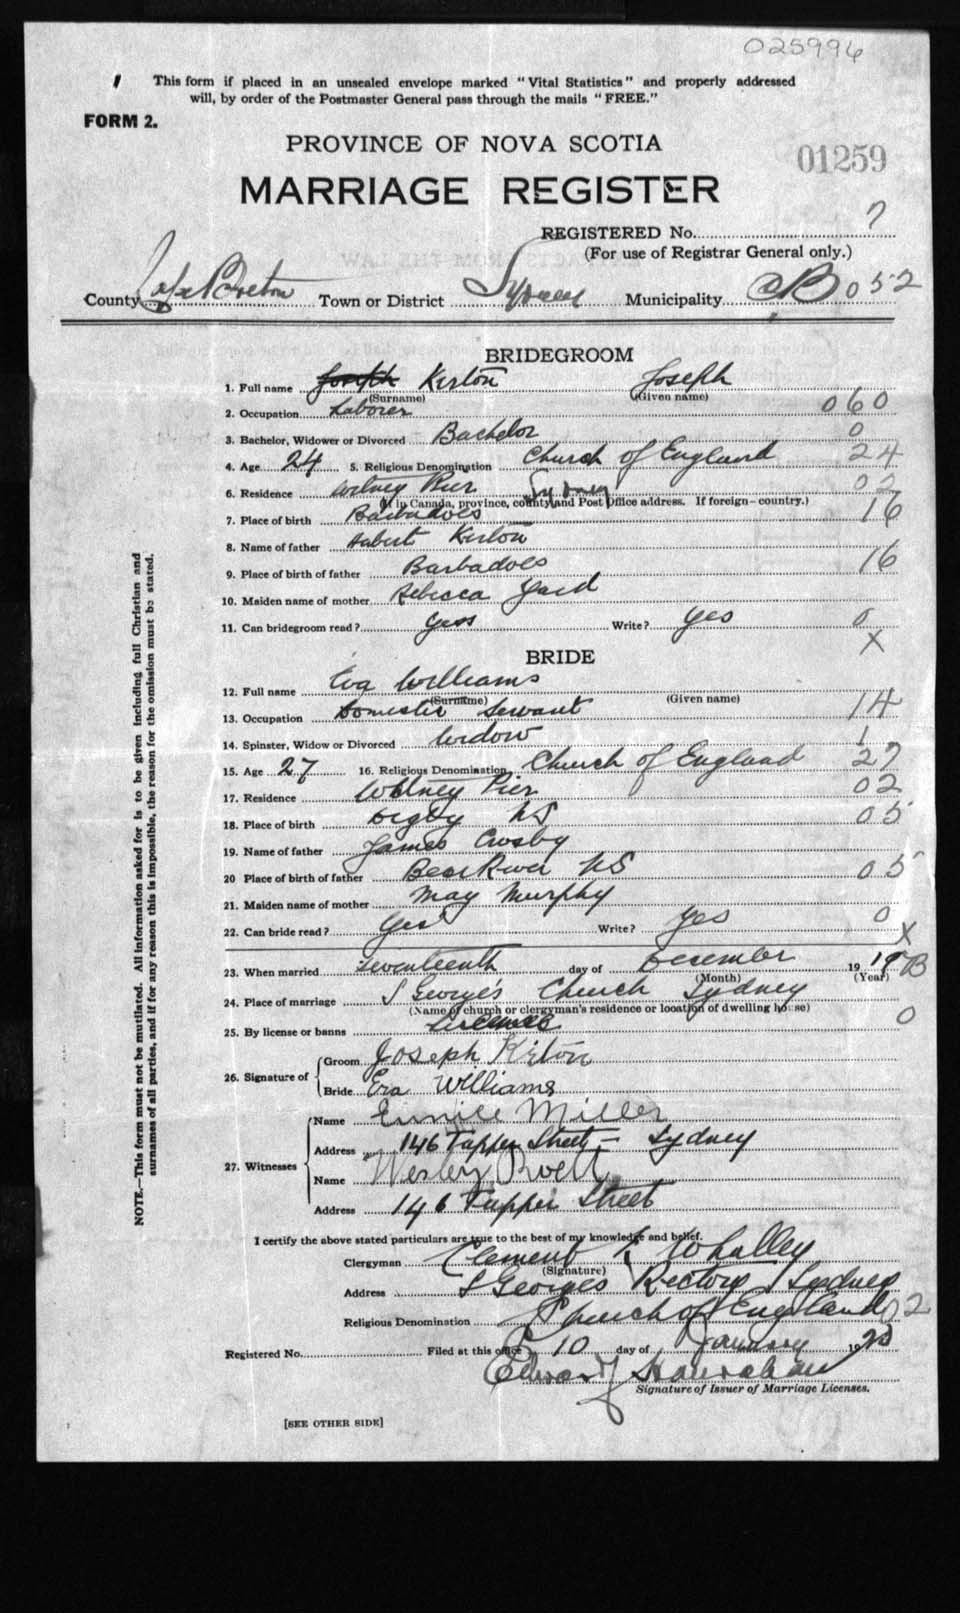 025996
This form if placed in an unsealed envelope marked "Vital Statistics" and properly addressed
will, by order of the Postmaster General pass through the mails "FREE."
FORM 2.
PROVINCE OF NOVA SCOTIA
01259
MARRIAGE REGISTER
REGISTERED No. 7
(For use of Registrar General only.)
County Cape Breton Town or District Sydney Municipality CB 052
BRIDEGROOM
1. Full name Kirton Joseph
(Surname) (Given name)
2. Occupation Laborer 060
3. Bachelor, Widower or Divorced Bachelor 0
4. Age 24 5. Religious Denomination Church of England 24
6. Residence Whitney Pier Sydney 02
(If in Canada, province, county and Post Office address. If foreign-country.)
7. Place of birth Barbadoes 16
8. Name of father Hubert Kirton
9. Place of birth of father Barbadoes 16
10. Maiden name of mother Rebecca Yard
11. Can bridegroom read? Yess Write? Yes 0
X
BRIDE
12. Full name Eva Williams
(Surname) (Given name)
13. Occupation Domestic Servant 14
14. Spinster, Widow or Divorced Widow 1
15. Age 27 16. Religious Denomination Church of England 27
17. Residence Whitney Pier 02
18. Place of birth Digby NS 05
19. Name of father James Crosby
20 Place of birth of father Bear River NS 05
21. Maiden name of mother May Murphy
22. Can bride read? Yes Write? Yes 0
X
23. When married Seventeenth day of December 19 19 B
(Month) (Year)
24. Place of marriage S George's Church Sydney
(Name of church or clergyman's residence or location of dwelling house)
25. By license or banns License 0
26. Signature of
Groom Joseph Kirton
Bride Eva Williams
27. Witnesses
Name Eunice Miller
Address 146 Tupper Street - Sydney
Name Wesley
Address 146 Tupper Street
I certify the above stated particulars are true to the best of my knowledge and belief.
Clergyman Clement Whalley
(Signature)
Address S Georges Rectory Sydney
Religious Denomination Church of England 02
Registered No. Filed at this office 10 day of January 1920
Edward Hanrahan
Signature of Issuer of Marriage Licenses.
[SEE OTHER SIDE]
NOTE.—This form must not be mutilated. All information asked for is to be given including full Christian and
surnames of all parties, and if for any reason this is impossible, the reason for the omission must be stated.